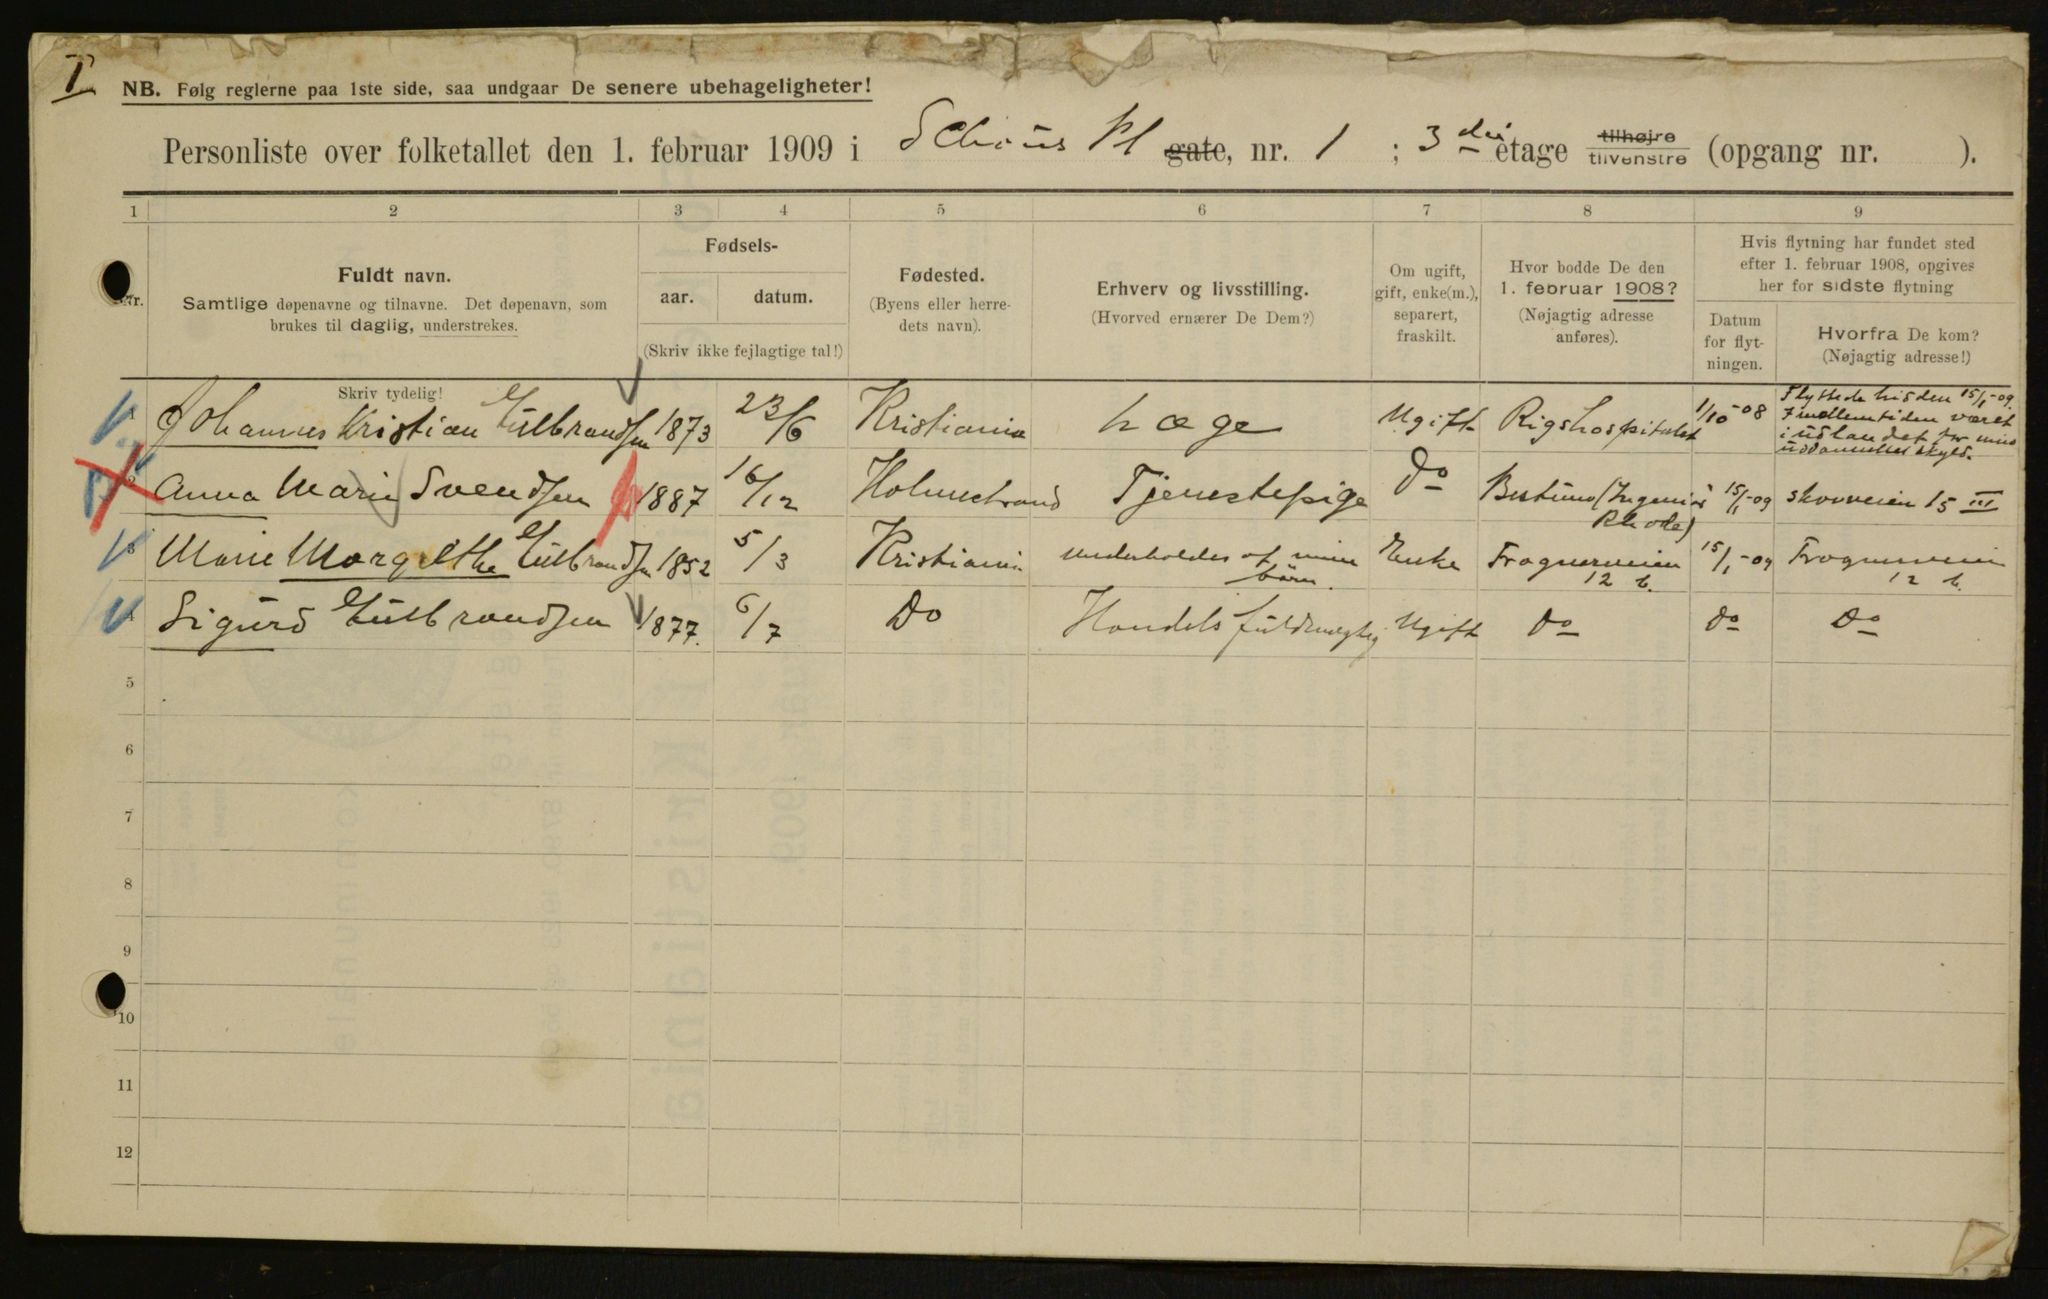 I
NB. Følg reglerne paa 1ste side, saa undgaar De senere ubehageligheter!
Personliste over folketallet den 1. februar 1909 i Schous Pl gate, nr. 1 ; 3die etage tilhøjre tilvenstre (opgang nr. ).
1 2 3 4 5 6 7 8 9
Nr.
Fuldt navn.
Samtlige døpenavne og tilnavne. Det døpenavn, som
brukes til daglig, understrekes.
Skriv tydelig!
Fødsels-
aar. datum.
(Skriv ikke fejlagtige tal!)
Fødested.
(Byens eller herre-
dets navn).
Erhverv og livsstilling.
(Hvorved ernærer De Dem?)
Om ugift,
gift, enke(m.),
separert,
fraskilt.
Hvor bodde De den
1. februar 1908?
(Nøjagtig adresse
anføres).
Hvis flytning har fundet sted
efter 1. februar 1908, opgives
her for sidste flytning
Datum
for flyt-
ningen.
Hvorfra De kom?
(Nøjagtig adresse!)
1 Johannes Kristian Gulbrandsen 1873 23/6 Kristiania Læge Ugift Rigshospitalet 1/10-08 Flyttede hid den 15/1-09.
I mellemtiden været
i udlandet for min
uddannelses skyld.
2 Anna Marie Svendsen 1887 16/12 Holmestrand Tjenestepige Do Bestum (Ingeniør 15/1-09 Skovveien 15 III
Rhode)
3 Marie Margrethe Gulbrandsen 1852 5/3 Kristiania underholdes af mine Enke Frognerveien 15/1-09 Frognerveien
børn. 12 b. 12 b.
4 Sigurd Gulbrandsen 1877. 6/7 Do Handelsfuldmægtig Ugift do do Do
5
6
7
8
9
10
11
12